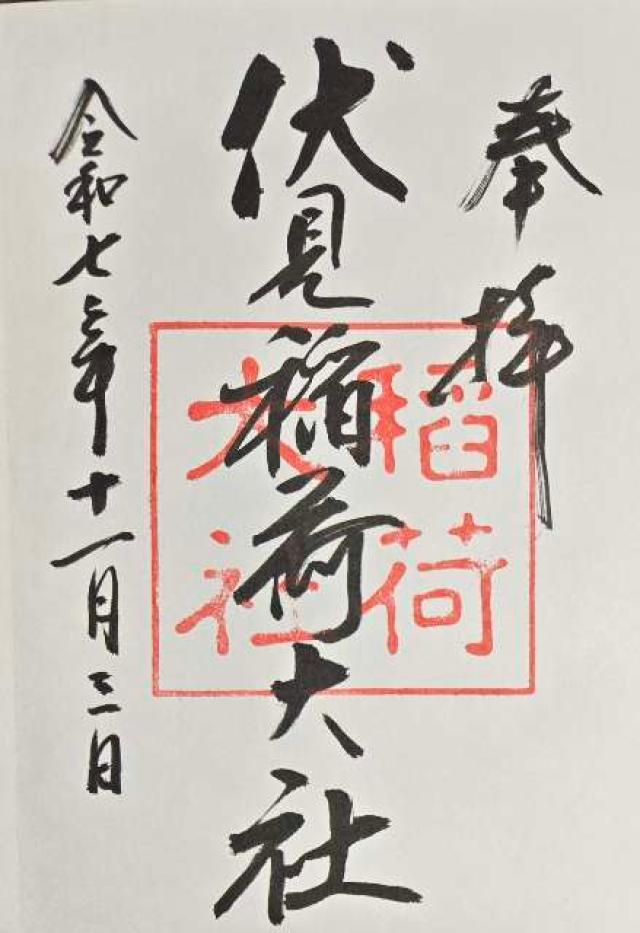 奉拝
伏見稲荷大社
稲荷
大社
令和七年十一月三日